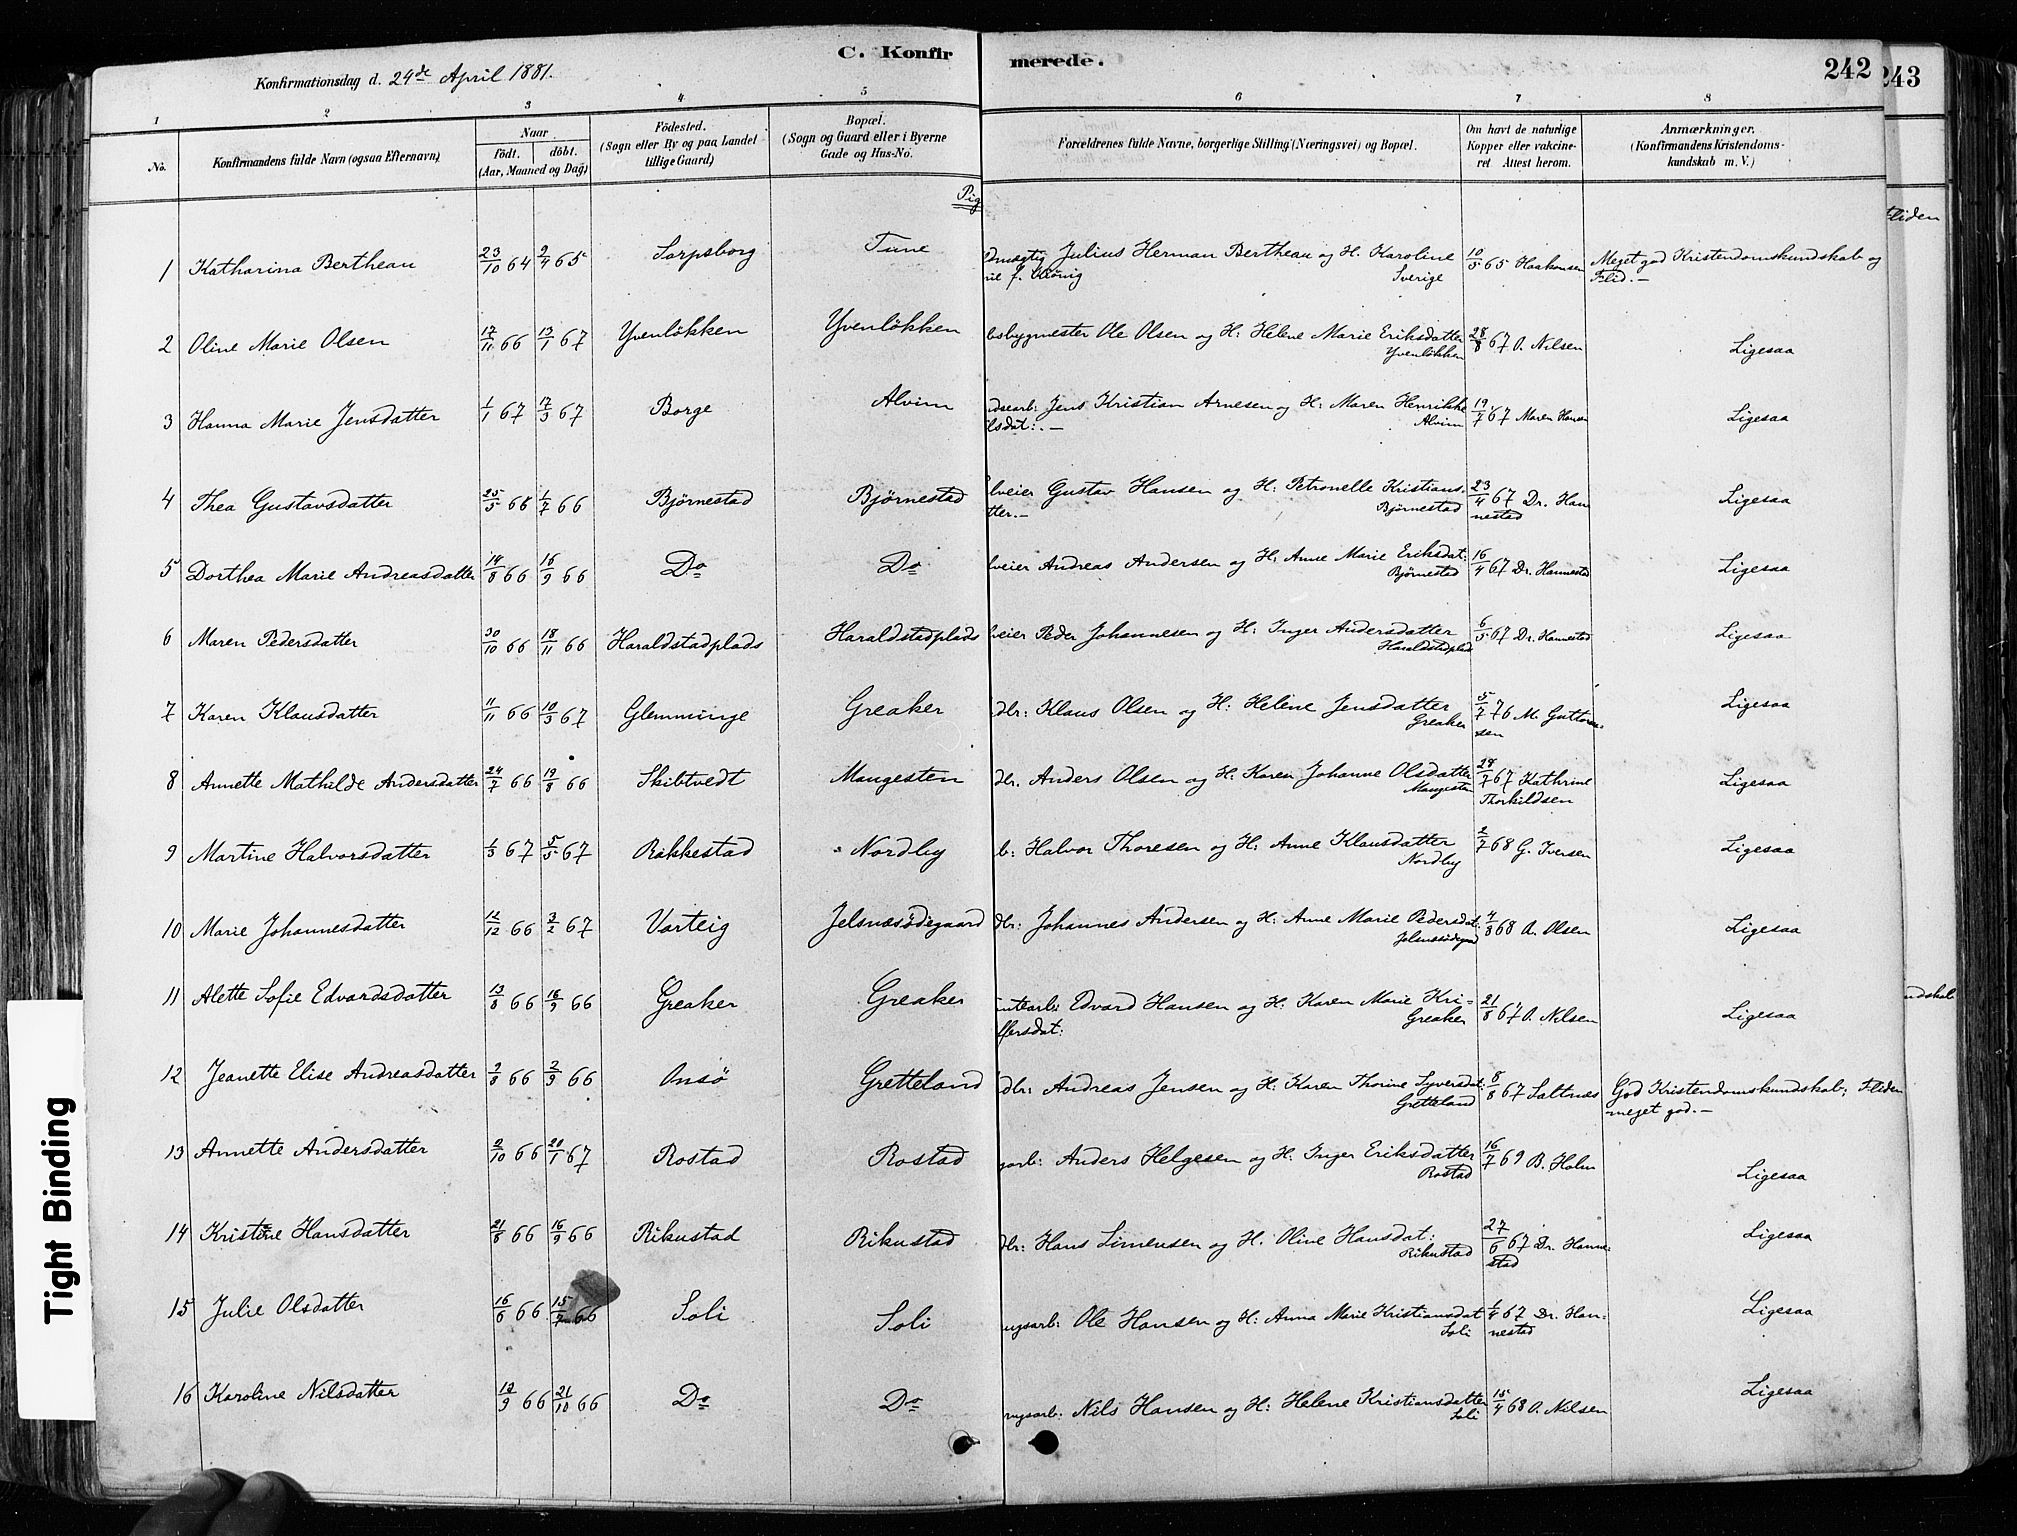 C. Konfir merede. 242 243
Konfirmationsdag d. 24de April 1881.
1 2 3 4 5 6 7 8
No. Konfirmandens fulde Navn (ogsaa Efternavn) Naar Födt. döbt. (Aar, Maaned og Dag) Födested. (Sogn eller By og paa Landet tillige Gaard) Bopæl. (Sogn og Gaard eller i Byerne Gade og Hus-No. Forældrenes fulde Navne, borgerlige Stilling (Næringsvei) og Bopæl. Om havt de naturlige Kopper eller vakcineret. Attest herom. Anmærkninger. (Konfirmandens Kristendomskundskab m. V.)
Pig
1 Katharina Bertheau 23/10 64 2/4 65 Sarpsborg Tune dmægtig Julius Herman Bertheau og H. Karoline 10/5 65 Haakonsen Meget god Kristendomskundskab og
Sverige Flid.—
2 Oline Marie Olsen 17/11 66 13/1 67 Yvenlökken Yvenlökken bsbygmester Ole Olsen og H: Helene Marie Eriksdatter 28/8 67 O. Nilsen Ligesaa
Yvenlökken
3 Hanna Marie Jensdatter 1/1 67 17/3 67 Borge Alvim dsearb: Jens Kristian Arnesen og H: Maren Henrikke 19/7 67 Maren Hansen Ligesaa
lsdat:.— Alvim
4 Thea Gustavsdatter 25/5 66 1/7 66 Bjørnestad Bjørnestad lveier Gustav Hansen og H: Petronelle Kristians- 23/4 67 Dr. Han Ligesaa
tter.— Bjørnestad nestad
5 Dorthea Marie Andreasdatter 14/8 66 16/9 66 Do Do lveier Andreas Andersen og H: Anne Marie Eriksdat: 16/4 67 Dr. Hannestad Ligesaa
Bjørnestad
6 Maren Pedersdatter 30/10 66 18/11 66 Haraldstadplads Haraldstadplads lveier Peder Johannesen og H: Inger Andersdatter 6/5 67 Dr. Hannestad Ligesaa
Haraldstadplad
7 Karen Klausdatter 11/11 66 10/3 67 Glemminge Greaker dlr: Klaus Olsen og H: Helene Jensdatter 5/7 76 M. Guttorm- Ligesaa
Greaker sen
8 Annette Mathilde Andersdatter 24/7 66 19/8 66 Skibtvedt Maugesten dlr. Anders Olsen og H. Karen Johanne Olsdatter 28/7 67 Kathrine Ligesaa
Maugesten Thorkildsen
9 Martine Halvorsdatter 1/3 67 5/5 67 Rakkestad Nordby b: Halvor Thoresen og H: Anne Klausdatter 2/7 68 G. Iversen Ligesaa
Nordby
10 Marie Johannesdatter 12/12 66 3/2 67 Varteig Jelsnæsödegaard dlr: Johannes Andersen og H: Anne Marie Pedersdat: 4/8 68 A. Olsen Ligesaa
11 Alette Sofie Edvardsdatter 13/8 66 16/9 66 Greaker Greaker mtearb: Edvard Hansen og H. Karen Marie Kri- 21/8 67 O. Nilsen Ligesaa
ffersdat: Greaker
ndskab
12 Jeanette Elise Andreasdatter 9/8 66 2/9 66 Onsö Gretteland dlr: Andreas Jensen og H: Karen Thorine Syversdat: 8/8 67 Saltnæs God Kristendomskundskab; Fliden
Gretteland meget god.—
13 Annette Andersdatter 9/10 66 20/1 67 Rostad Rostad garb: Anders Helgesen og H: Inger Eriksdatter 16/7 69 B. Holm Ligesaa
Rostad
14 Kristine Hansdatter 21/8 66 16/9 66 Rikustad Rikustad dlr: Hans Simensen og H. Oline Hansdat: 27/6 67 Dr. Hanne- Ligesaa
Rikustad stad
15 Julie Olsdatter 16/6 66 15/7 66 Soli Soli ugsarb: Ole Hansen og H: Anna Marie Kristiansdat 1/4 67 Dr. Han- Ligesaa
Soli nestad
16 Karoline Nilsdatter 12/9 66 21/10 66 Do Do rugsarb: Nils Hansen og H: Helene Kristiansdatter 15/4 68 O. Nilsen Ligesaa
Soli
Fliden
Tight Binding